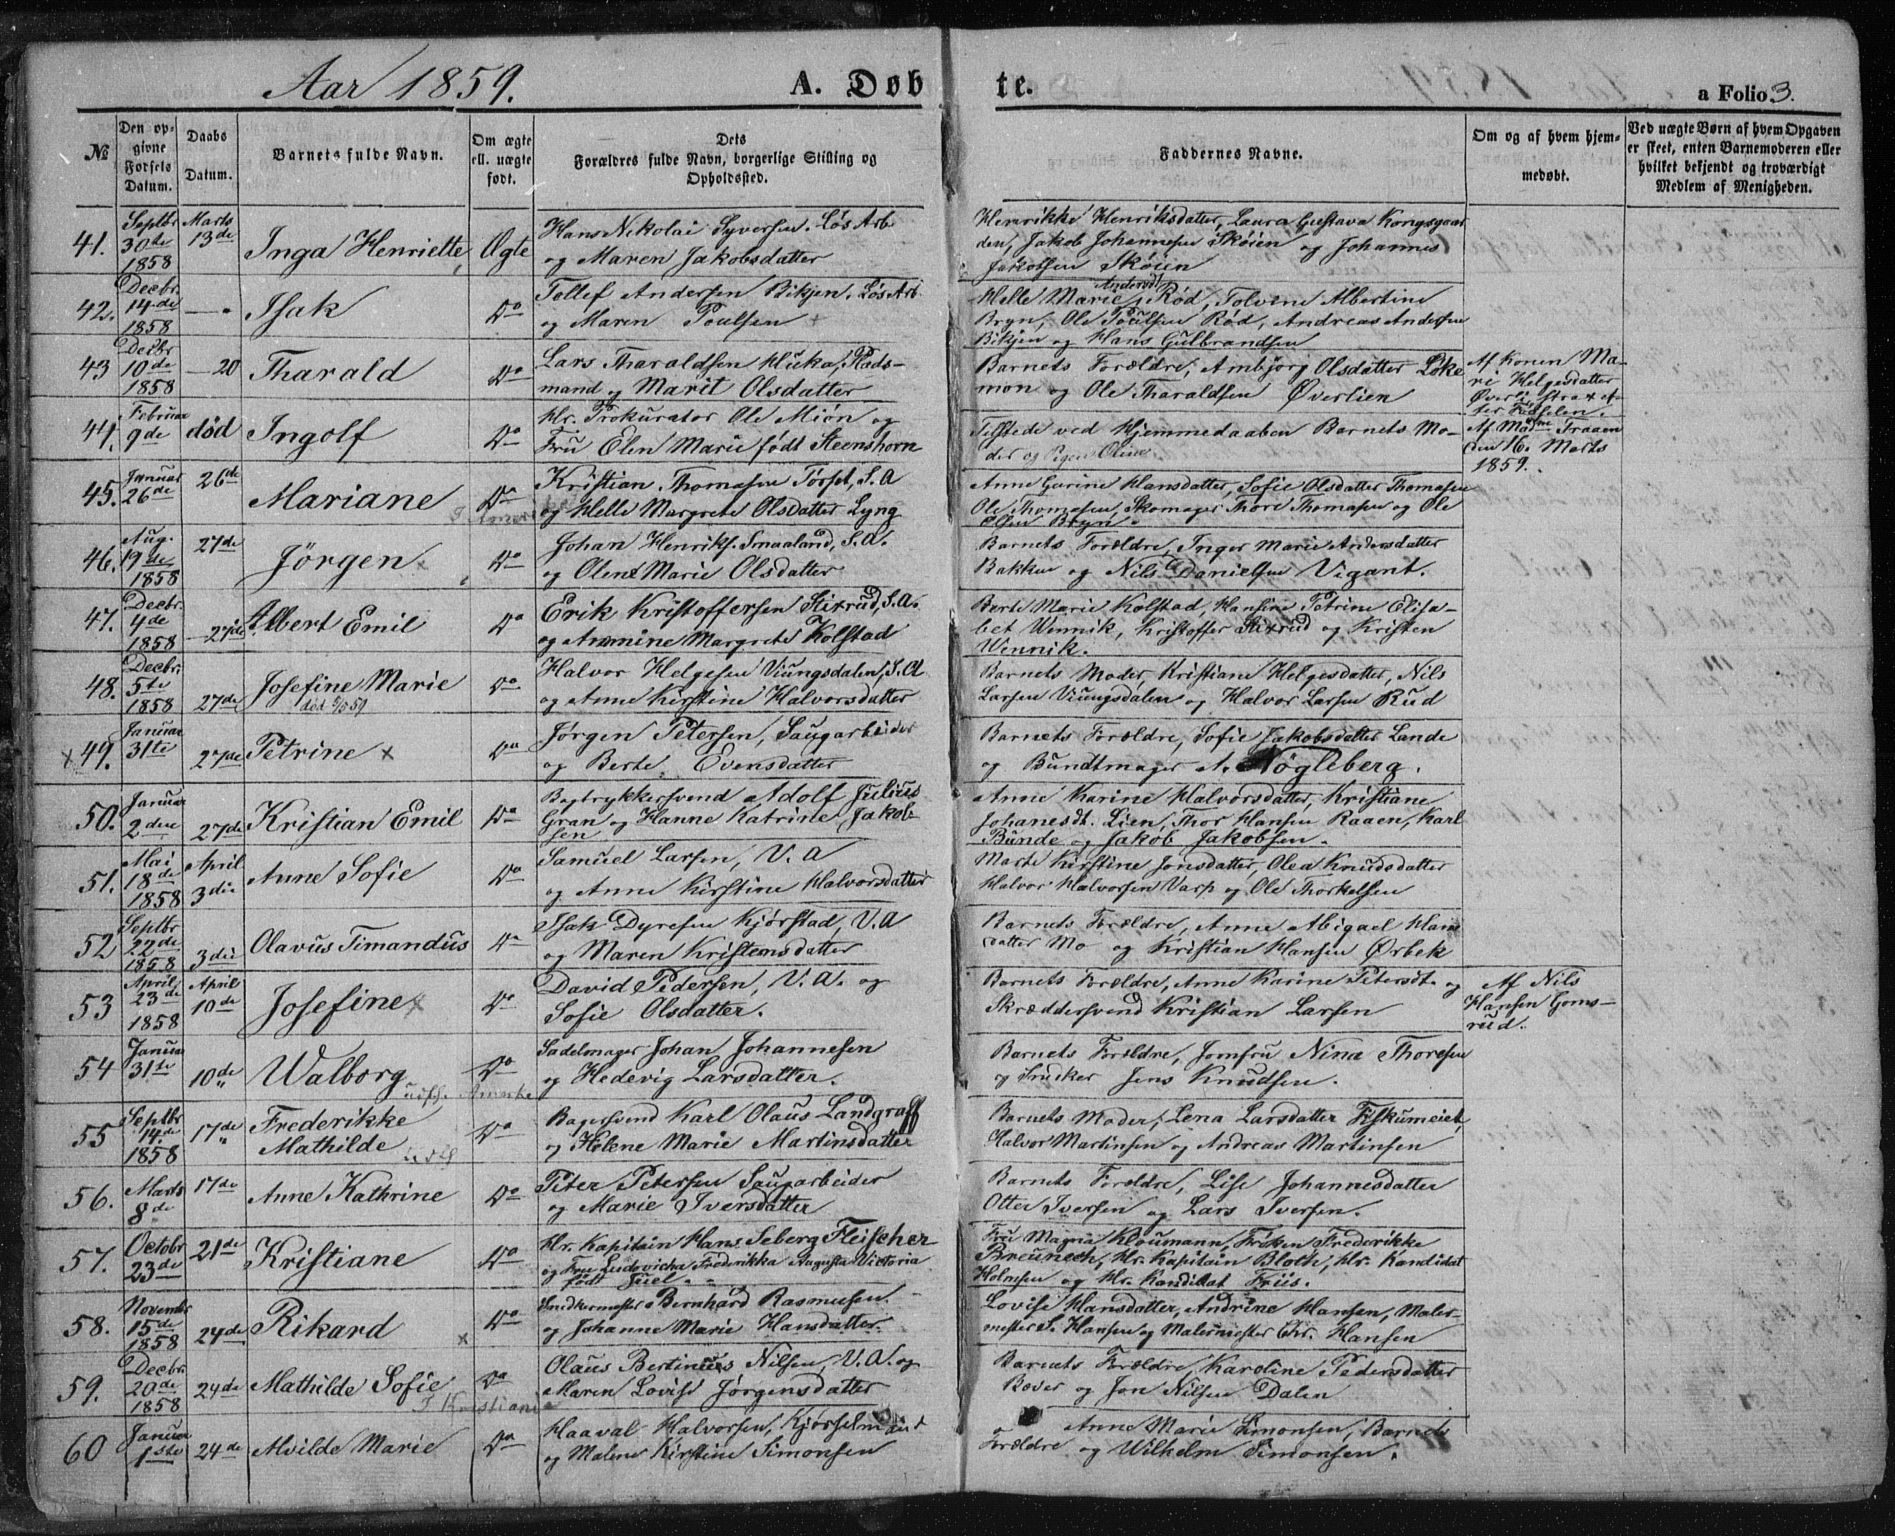 Aar 1859. A. Døbte. a Folio 3.
№ | Den opgivne Fødsels Datum. | Daabs Datum. | Barnets fulde Navn. | Om ægte ell. uægte født. | Dets Forældres fulde Navn, borgerlige Stilling og Opholdssted. | Faddernes Navne. | Om og af hvem hjemmedøbt. | Ved uægte Børn af hvem Opgaven er skeet, enten Barnemoderen eller hvilket bekjendt og troværdigt Medlem af Menigheden.
41. Septbr 30te 1858 | Marts 13de | Inga Henriette | Ægte | Hans Nikolai Syversen. Løs Arb
og Maren Jakobsdatter | Henrikke Henriksdatter, Laura Gustava Kongsgaar
den, Jakob Johannesen Skøien og Johannes
Jakobsen Skøien
42. Decbr. 14de 1858 | — " | Isak | Do | Tollef Andersen Bikjen. Løs Arb
og Maren Poulsen | Helle Marie Andersdt Rød, Tolvine Albertine
Bryn, Ole Poulsen Rød, Andreas Andersen
Bikjen og Hans Gulbrandsen
43 Decbr 10de 1858 | — 20 | Tharald | Do | Lars Tharaldsen Huka, Plads-
mand og Marit Olsdatter | Barnets Forældre, Ambjørg Olsdatter Løke
mon og Ole Tharaldsen Øverlien | Af Konen Ma-
ri Helgesdatter
Øverli strax ef-
ter Fødselen.
44. Februar 9de | død | Ingolf | Do | Hr. Prokurator Ole Miøn og
Fru Elen Marie født Steenshorn | Tilstede ved Hjemmedaaben Barnets Mo-
der og Pigen Oline | Af Madme Traaen
den 16. Marts
1859.
45. Januar 26de | 26de | Mariane | Do | Kristian Thomasen Tørset, S. A
og Helle Margrete Olsdatter Lyng | Anne Gurine Hansdatter, Sofie Olsdatter Thomasen
Ole Thomasen, Skomager Thore Thomasen og Ole
Olsen Bryn.
46. Aug. 19de 1858 | 27de | Jörgen | Do | Johan Henriks. Smaaland, S. A.
og Olene Marie Olsdatter | Barnets Forældre, Inger Marie Andersdatter
Bakken og Nils Danielsen Vigant.
47. Decbr. 4de 1858 | — 27de | Albert Emil | Do | Erik Kristoffersen Skixrud, S. A.
og Annmine Margrete Kolstad | Berte Marie Kolstad, Hansine Petrine Elisa-
bet Wennik, Kristoffer Skixrud og Kristen
Wennik.
48. Decbr. 5te 1858 | 27de | Josefine Marie
død 9/8 59 | Do | Halvor Helgesen Viungsdalen, S. A
og Anne Kirstine Halvorsdatter | Barnets Moder, Kristiane Helgesdatter, Nils
Larsen Viungsdalen og Halvor Larsen Rud
x 49. Januar 31te | 27de | Petrine x | Do | Jørgen Petersen, Saugarbeider
og Berte Evensdatter | Barnets Forældre, Sofie Jakobsdatter Lande
og Bundtmager A. Nøgleberg.
50. Januar 2den | 27de | Kristian Emil | Do | Bogtrykkersvend Adolf Julius
Gran og Hanne Katrine Jakob-
sen | Anne Karine Halvorsdatter, Kristiane
Johanesdt. Lien, Thor Hansen Raaen, Karl
Bunde og Jakob Jakobsen.
51. Mai 18de 1858 | April 3die | Anne Sofie | Do | Samuel Larsen, V. A
og Anne Kirstine Halvorsdatter | Marte Kirstine Jonsdatter, Olea Knudsdatter
Halvor Halvorsen Varp og Ole Thorkelsen
52 Septbr 22de 1858 | 3die | Olavus Timandus | Do | Isak Dyresen Kjørstad, V. A
og Maren Kristensdatter | Barnets Forældre, Anne Abigael Hans
datter Mo og Kristian Hansen Ørbek
53 April 23de 1858 | April 10de | Josefine x | Do | David Pedersen, V. A. og
Sofie Olsdatter. | Barnets Forældre, Anne Karine Petersdt. og
Skræddersvend Kristian Larsen | Af Nils
Hansen Goms-
rud.
54 Januar 31te | 10de | Walborg | Do | Sadelmager Johan Johannesen
og Hedevig Larsdatter. | Barnets Forældre, Jomfru Nina Thoresen
og Snedker Jens Knudsen.
55 Septbr 14de 1858 | 17de | Frederikke
Mathilde | Do | Bagersvend Karl Olaus Landgraff
og Helene Marie Martinsdatter | Barnets Moder, Lena Larsdatter Fiskumeiet,
Halvor Martinsen og Andreas Martinsen
56. Marts 8de | 17de | Anne Kathrine | Do | Peter Petersen Saugarbeider
og Marie Iversdatter | Barnets Forældre, Lise Johannesdatter
Otter Iversen og Lars Iversen.
57. Octobr 23de | 21de | Kristiane | Do | Hr. Kapitain Hans Seberg Fleischer
og Fru Ludovicha Frederikka Augusta Victoria
født Juel. | Fru Magna Kloumann, Frøken Frederikke
Breunech, Hr. Kapitain Bloth, Hr. Kandidat
Holmsen og Hr. Kandidat Friis.
58. Novembr 15de 1858 | 24de | Rikard x | Do | Snedkermester Bernhard Rasmusen.
og Johanne Marie Hansdatter. | Lovise Hansdatter, Andrine Hansen, Maler-
mester S. Hansen og Malermester Chr. Hansen
59. Decbr. 20de 1858 | 24de | Mathilde Sofie
I Kristiania | Do | Olaus Bertineus Nilsen, V. A. og
Maren Lovise Jørgensdatter | Barnets Forældre, Karoline Pedersdatter
Bæver og Jon Nilsen Dalen
60 Januar 1ste | 24de | Alvilde Marie | Do | Haaval Halvorsen, Kjørselmand
og Malene Kirstine Simonsen | Anne Marie Simonsen, Barnets
Forældre og Wilhelm Simonsen.